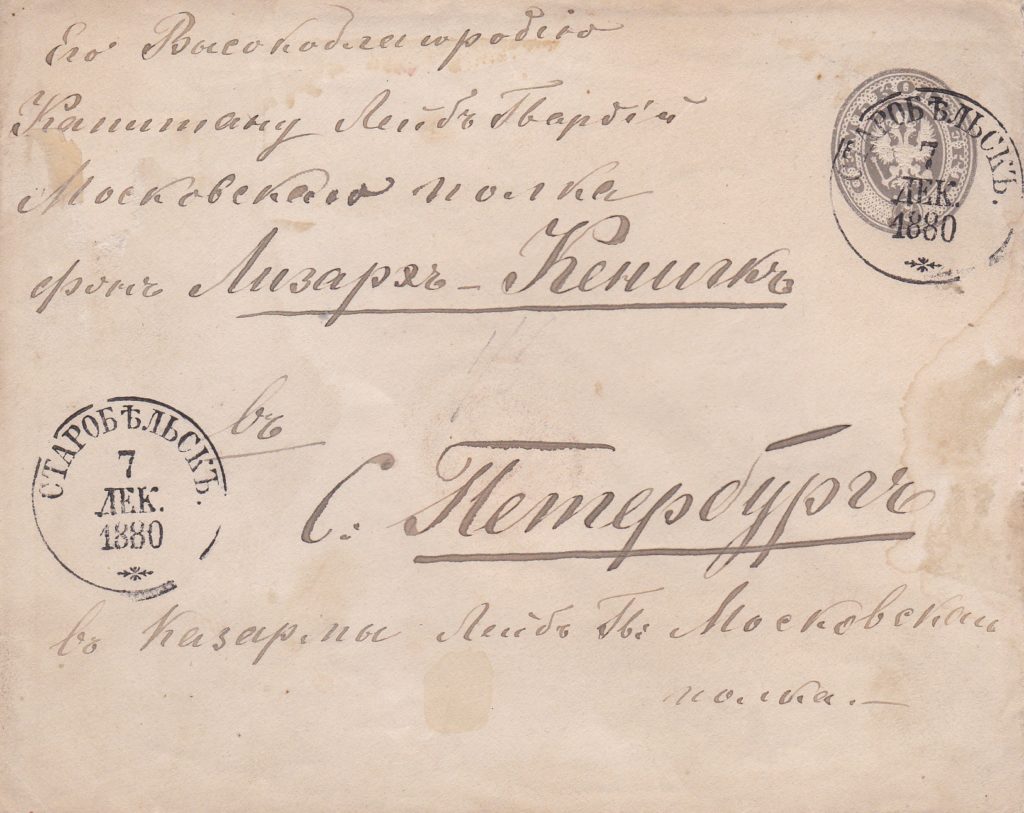 Его Высокоблагородію
Капитану Лейбъ Гвардій
Московскаго полка
фонъ Лизархъ-Кенигкъ
СТАРОБѢЛЬСКЪ.
7
ДЕК.
1880
въ
С: Петербургъ
СТАРОБѢЛЬСКЪ.
7
ДЕК.
1880
въ Казармы Лейбъ Гв: Московскаго
полка.—